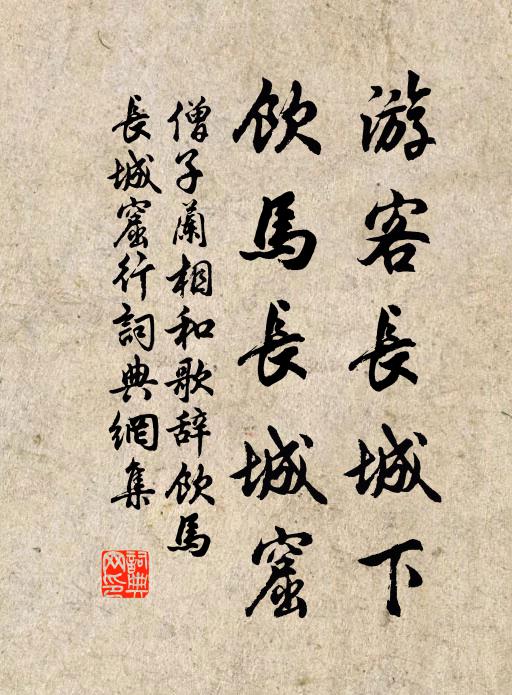 游客長城下
飲馬長城窟
僧子蘭相和歌辞飲馬
長城窟行詞典網集
詞典
网印